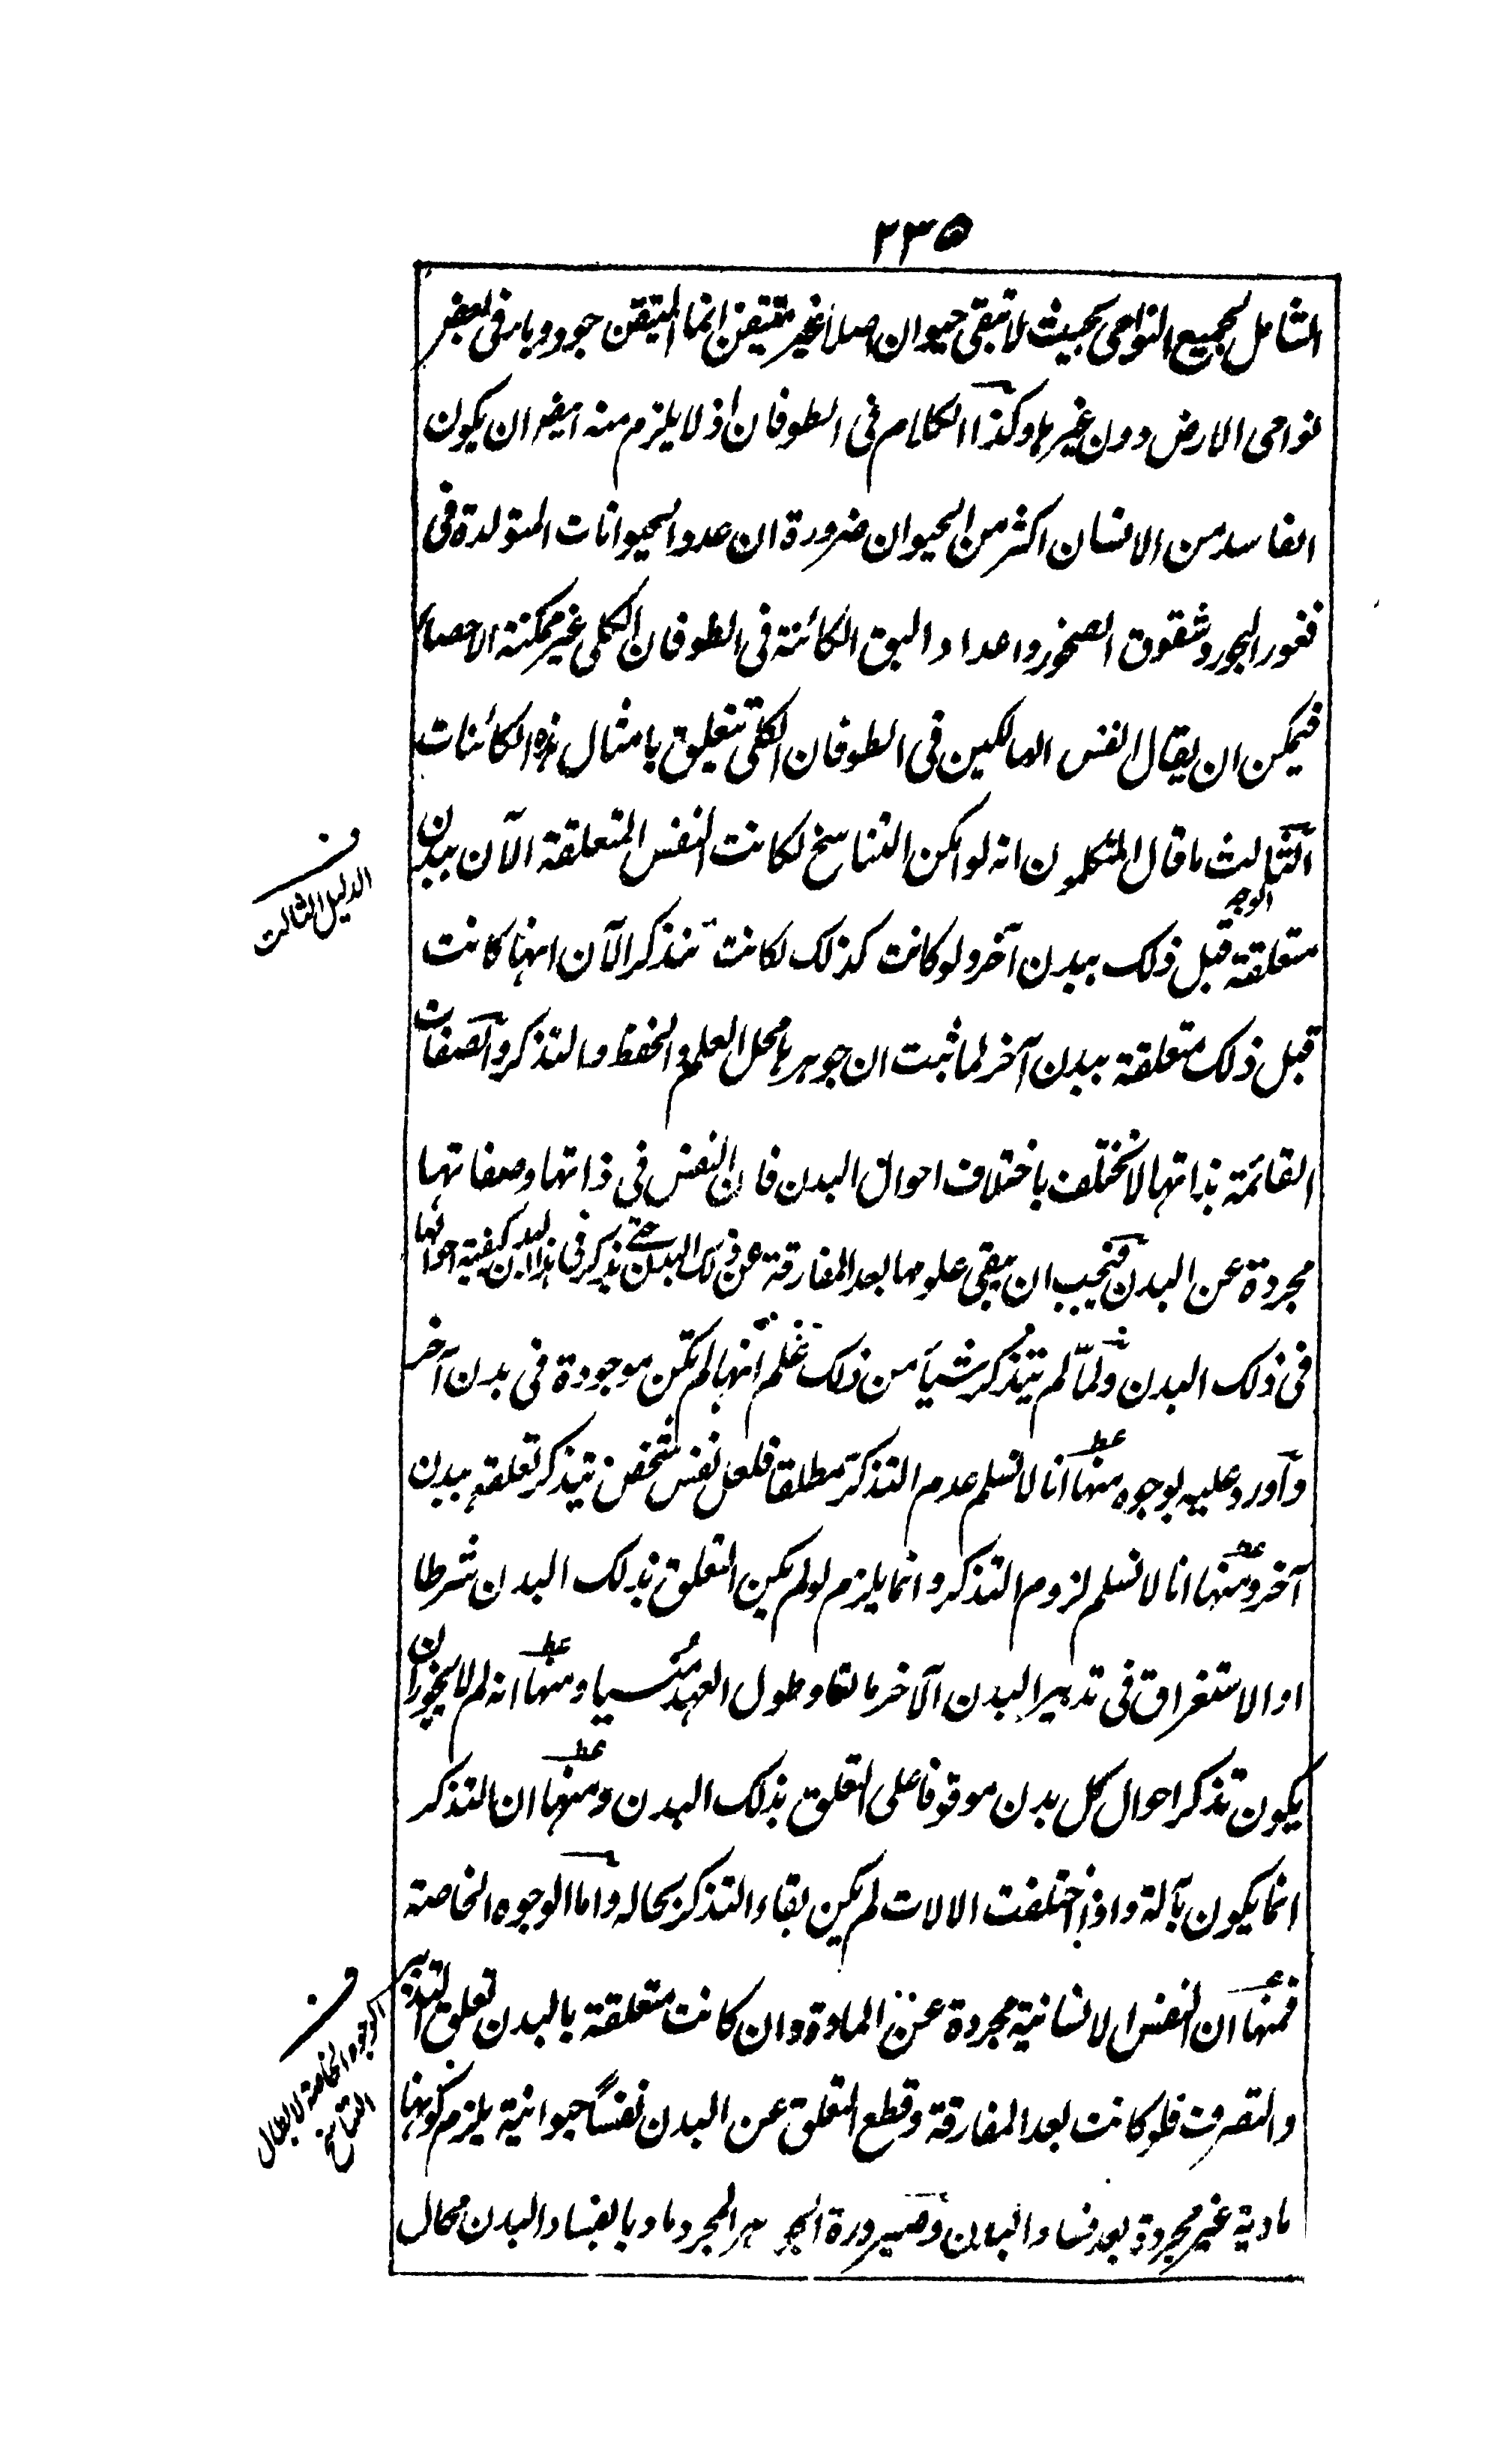 ٢٣٥
الشامل لجميع النواحى بحيث لا تبقى حيوان اصلا غير متيقن انما المتيقن وجود وباء فى بعض
نواحى الارض دون غيرها وكذا الكلام فى الطوفان اذ لا يلزم منه ايضا ان يكون
الفاسد من الانسان اكثر من الحيوان ضرورة ان عدد الحيوانات المتولدة فى
قعور البحور وشقوق الصخور واعداد البق الكائنة فى الطوفان الكلى غير ممكنة الاحصاء
فيمكن ان يقال انفس الهالكين فى الطوفان الكلى تتعلق بامثال هذه الكائنات
الوجه الثالث ما قال المتكلمون انه لو امكن التناسخ لكانت النفس المتعلقة الآن ببدن
متعلقة قبل ذلك ببدن آخر ولو كانت كذلك لكانت تتذكر الآن انها كانت
قبل ذلك متعلقة ببدن آخر لما ثبت ان جوهرها محل العلم والحفظ والتذكر والصفات
القائمة بذاتها لا تختلف باختلاف احوال البدن فان النفس فى ذاتها وصفاتها
مجردة عن البدن فيجب ان يبقى علومها بعد المفارقة عن ذلك البدن حتى يذكر فى هذا البدن كيفية احوالها
فى ذلك البدن ولمّا لم يتذكر شيأ من ذلك علم انها لم تكن موجودة فى بدن آخر
وأورد عليه بوجوه منها انا لا نسلم عدم التذكر مطلقا فلعل نفس شخص يتذكر تعلقه ببدن
آخر ومنها انا لا نسلم لزوم التذكر وانما يلزم لو لم يكن التعلق بذلك البدن شرطا
او الاستغراق فى تدبير البدن الآخر مانعا وطول العهد مُنسيا ومنها انه لم لا يجوز ان
يكون تذكر احوال كل بدن موقوفا على التعلق بذلك البدن ومنها ان التذكر
انما يكون بآلة واذا اختلفت الالات لم يكن بقاء التذكر بحاله واما الوجوه الخاصة
فمنها ان النفس الانسانية مجردة عن المادة وان كانت متعلقة بالبدن تعلق التدبير
والتصرف فلو كانت بعد المفارقة وقطع التعلق عن البدن نفسًا حيوانية يلزم كونها
مادية غير مجردة بعد فساد البدن وصيرورة الجوهر المجرد ماديا بفساد البدن محال
ف
الدليل الثالث
ف
الوجوه الخاصة لابطال
التناسخ